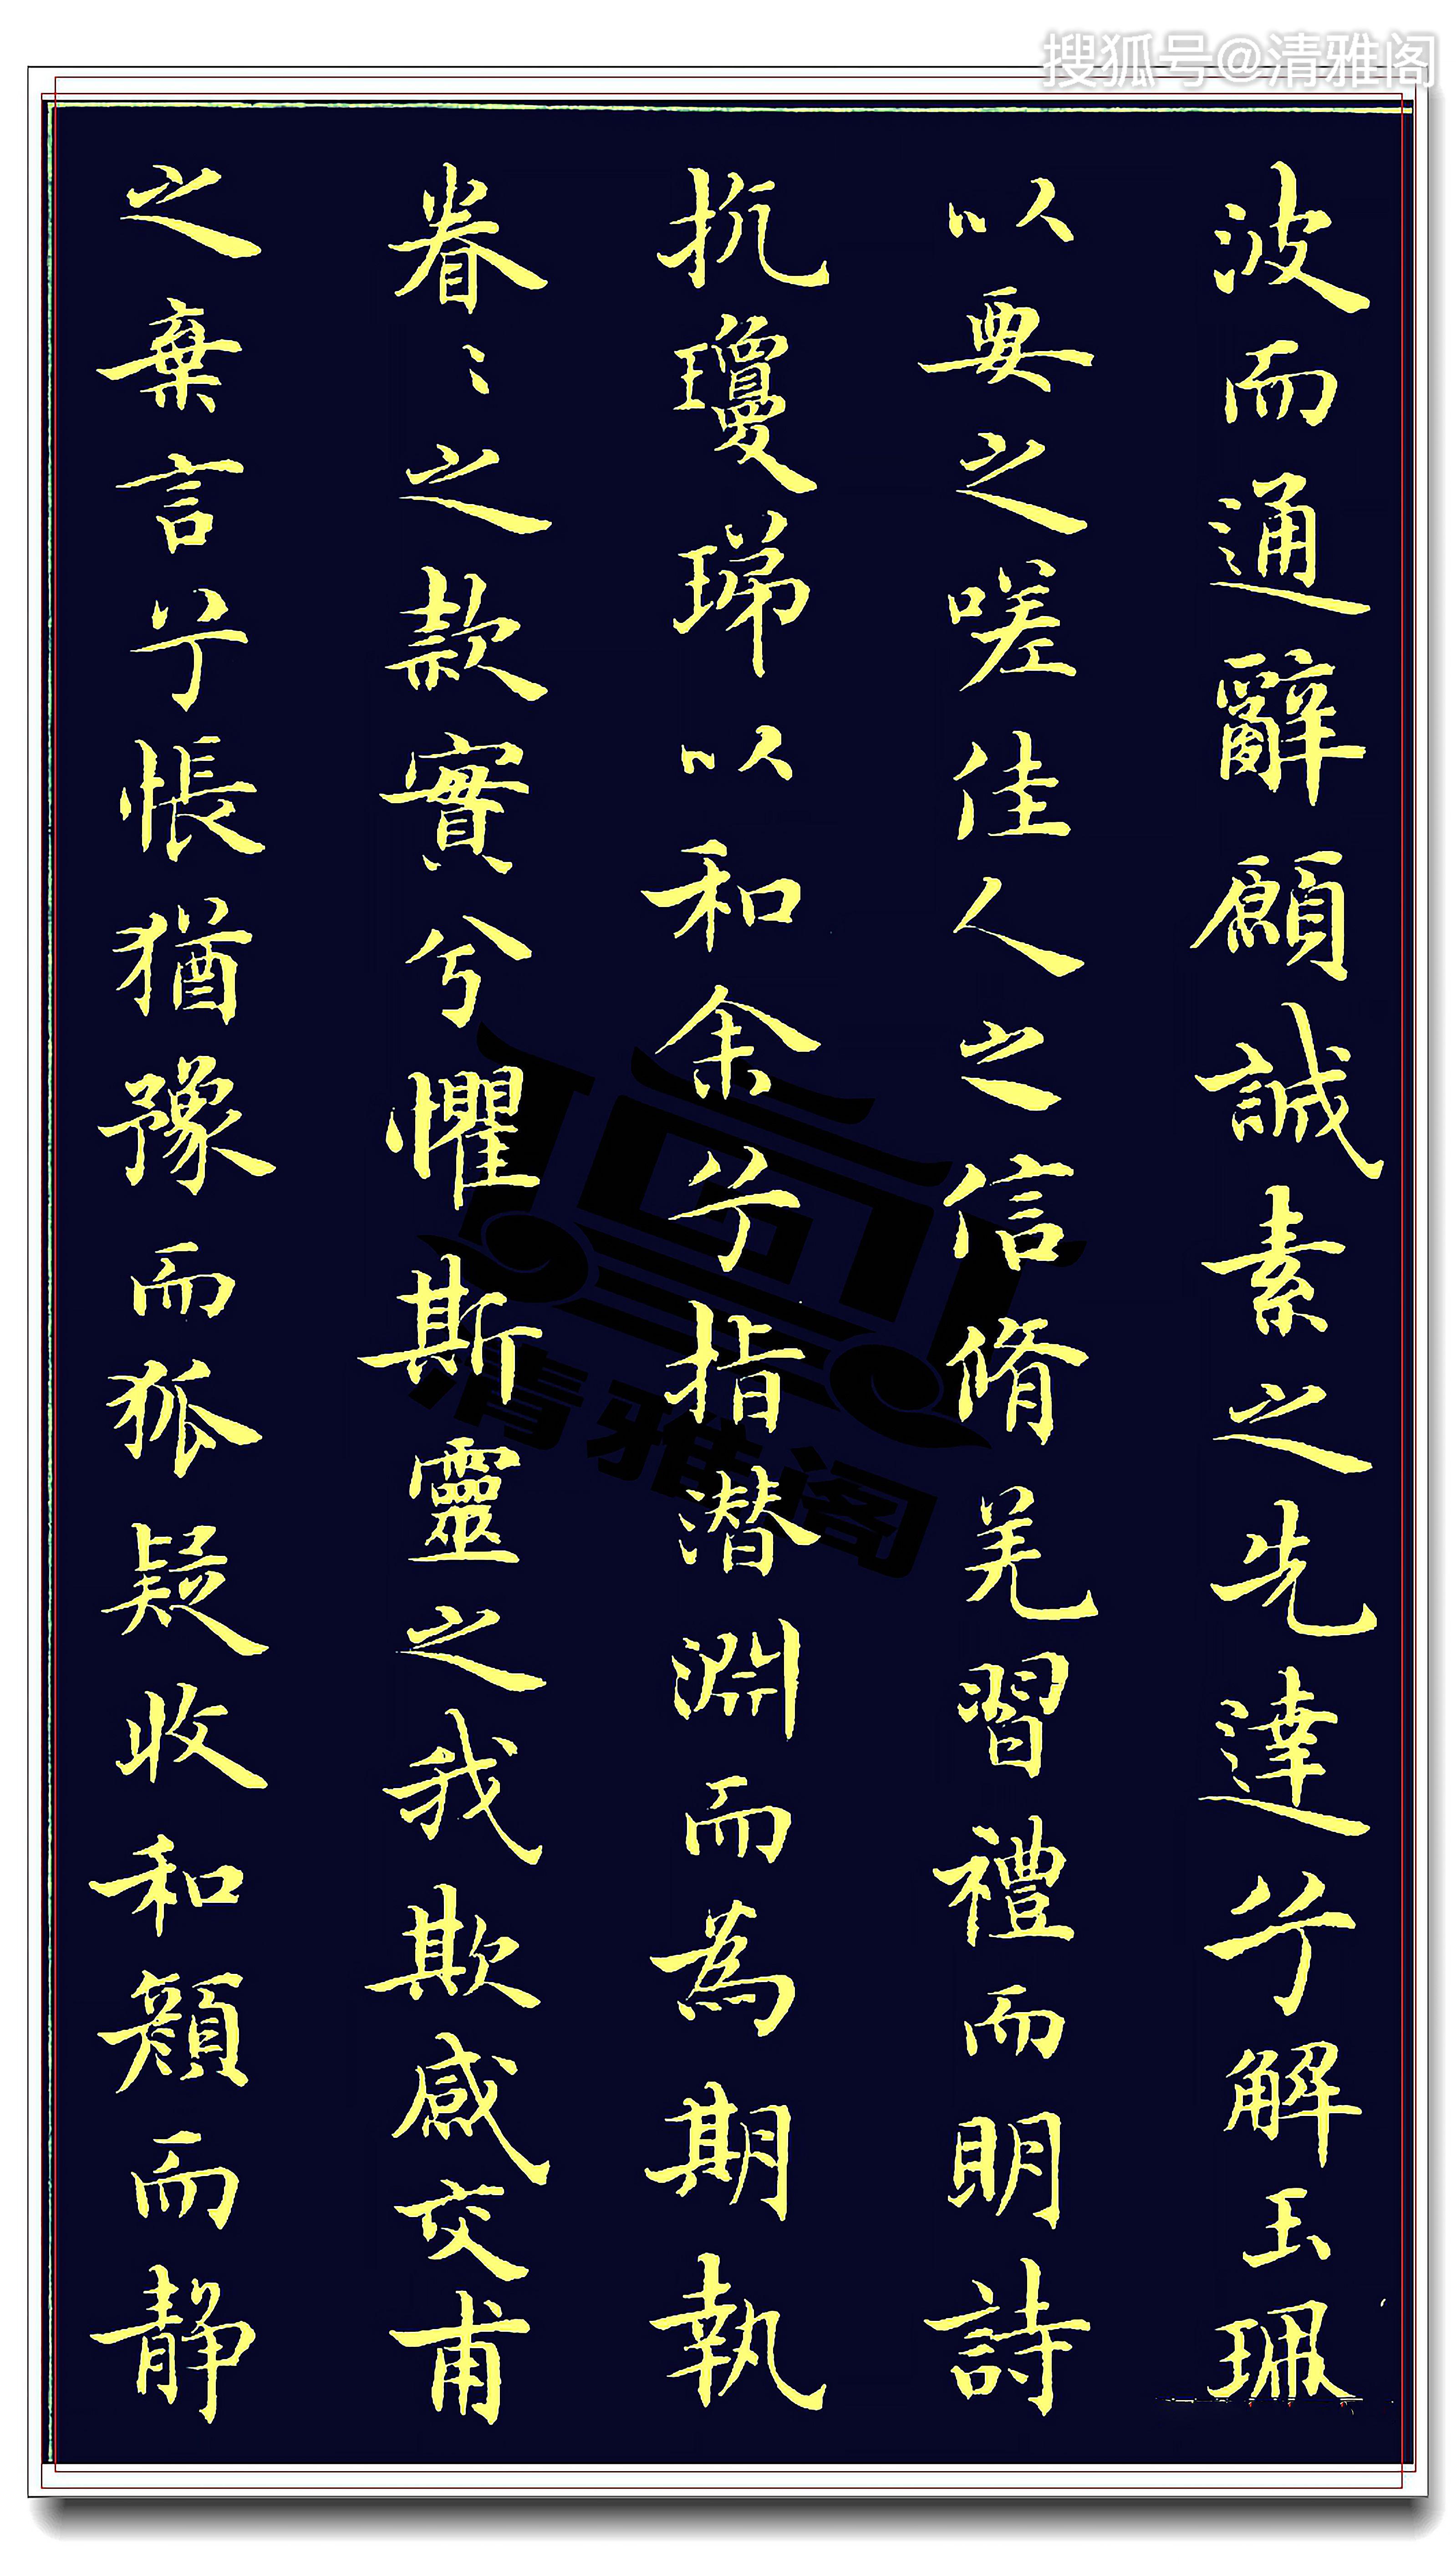 搜狐号@清雅阁
波而通辭願誠素之先達兮解玉珮
以要之嗟佳人之信脩羌習禮而明詩
抗瓊珶以和余兮指潛淵而為期執
眷〻之款實兮懼斯靈之我欺感交甫
之棄言兮悵猶豫而狐疑收和顏而静
清雅阁